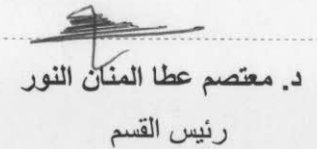 د. معتصم عطا المنان النور
رئيس القسم